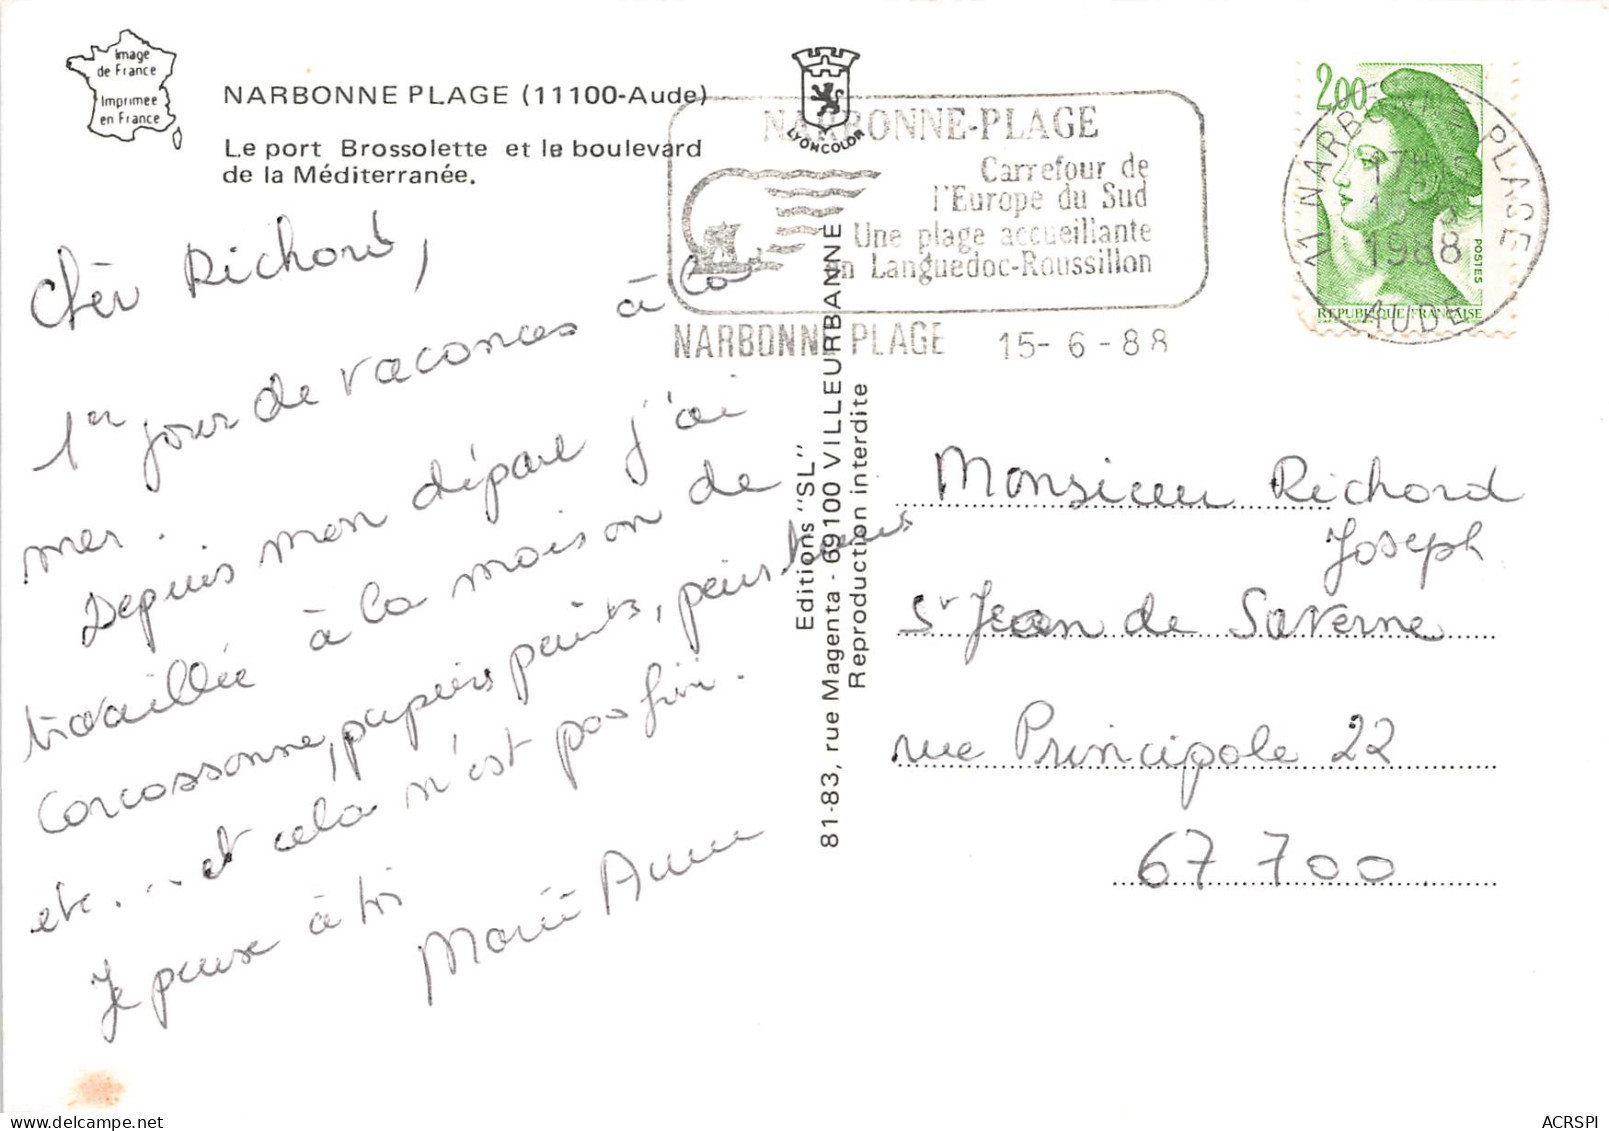 Image
de France
Imprimee
en France
NARBONNE PLAGE (11100-Aude)
Le port Brossolette et le boulevard
de la Méditerranée.
LYONCOLOR
NARBONNE-PLAGE
Carrefour de
l'Europe du Sud
Une plage accueillante
en Languedoc-Roussillon
NARBONNE PLAGE 15-6-88
2,00
POSTES
REPUBLIQUE FRANÇAISE
11 NARBONNE PLAGE
1988
AUDE
Cher Richard,
1er jour de vacances à la
mer.
Depuis mon départ j'ai
travaillée à la maison de
Carcassonne, papiers peints, peintures
etc... et cela n'est pas fini.
Je pense à toi
Marie Anne
Editions "SL"
81-83, rue Magenta - 69100 VILLEURBANNE
Reproduction interdite
Monsieur Richard
Joseph
St Jean de Saverne
rue Principale 22
67 700
ACRSPI